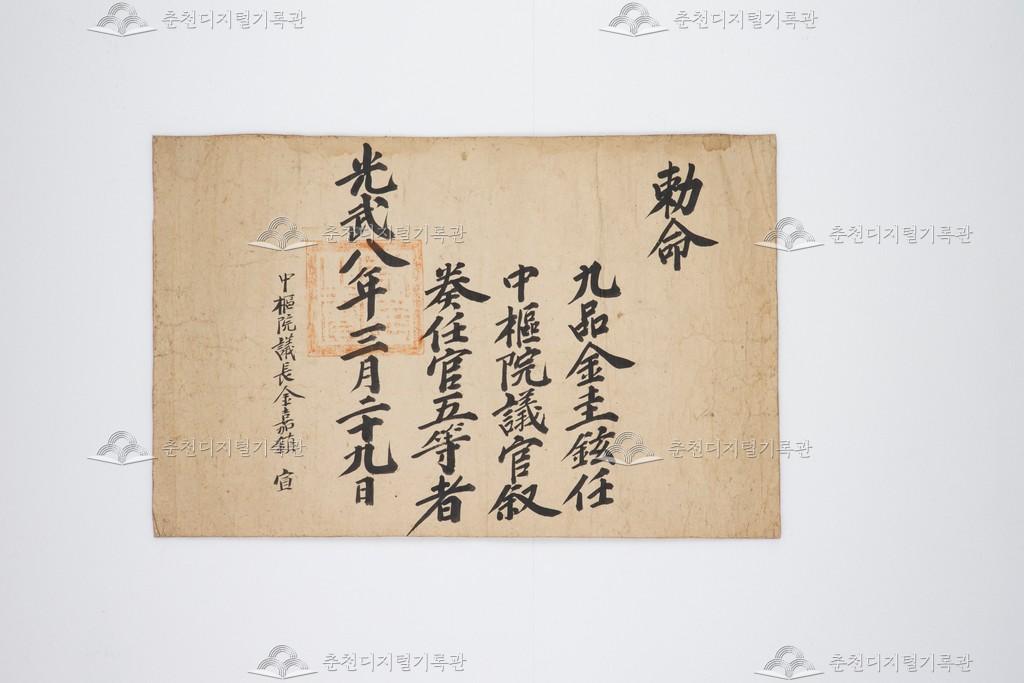 勅命
九品金圭鉉任
中樞院議官叙
奏任官五等者
光武八年三月二十九日
中樞院議長金嘉鎮 宣
춘천디지털기록관
춘천디지털기록관
춘천디지털기록관
춘천디지털기록관
춘천디지털기록관
춘천디지털기록관
춘천디지털기록관
춘천디지털기록관